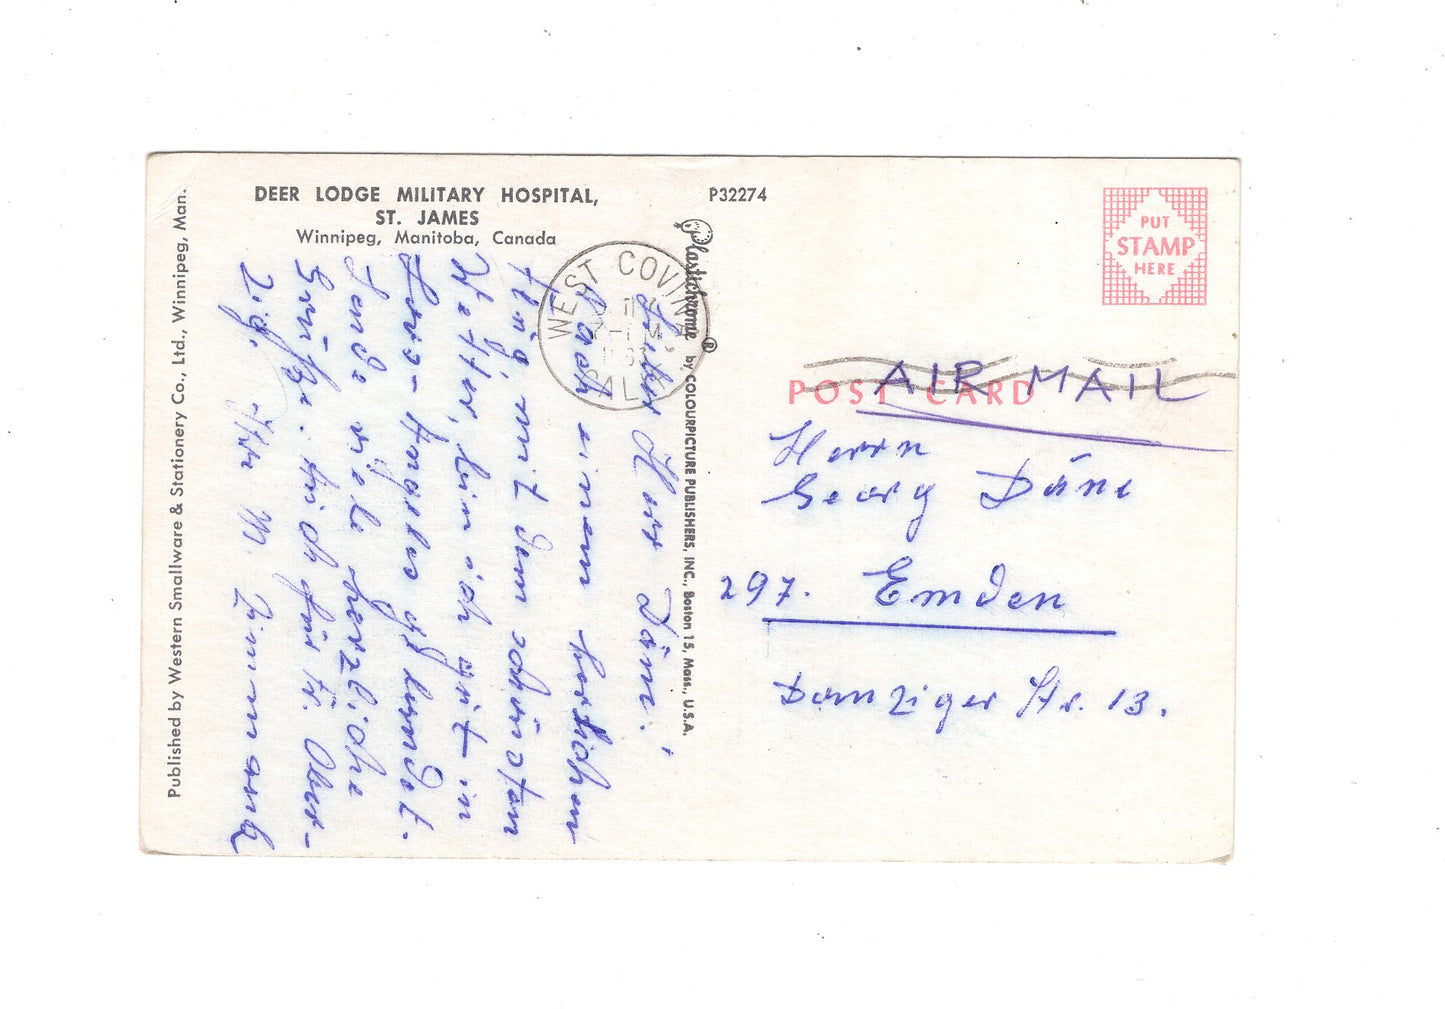 DEER LODGE MILITARY HOSPITAL,
ST. JAMES
Winnipeg, Manitoba, Canada
P32274
PUT
STAMP
HERE
Published by Western Smallware & Stationery Co., Ltd., Winnipeg, Man.
Plastichrome ® by COLOURPICTURE PUBLISHERS, INC., Boston 15, Mass., U.S.A.
WEST COVINA
CALIF
POST CARD
AIR MAIL
Lieber Herr Däne!
Nach einem herrlichen
Flug mit dem schönsten
Wetter, bin ich gut in
Los-Angeles gelandet.
Sende viele herzliche
Grüße. Auch für Fr. Ober-
Ihr M. Zimmank
Herrn
Georg Däne
297. Emden
Danziger Str. 13.